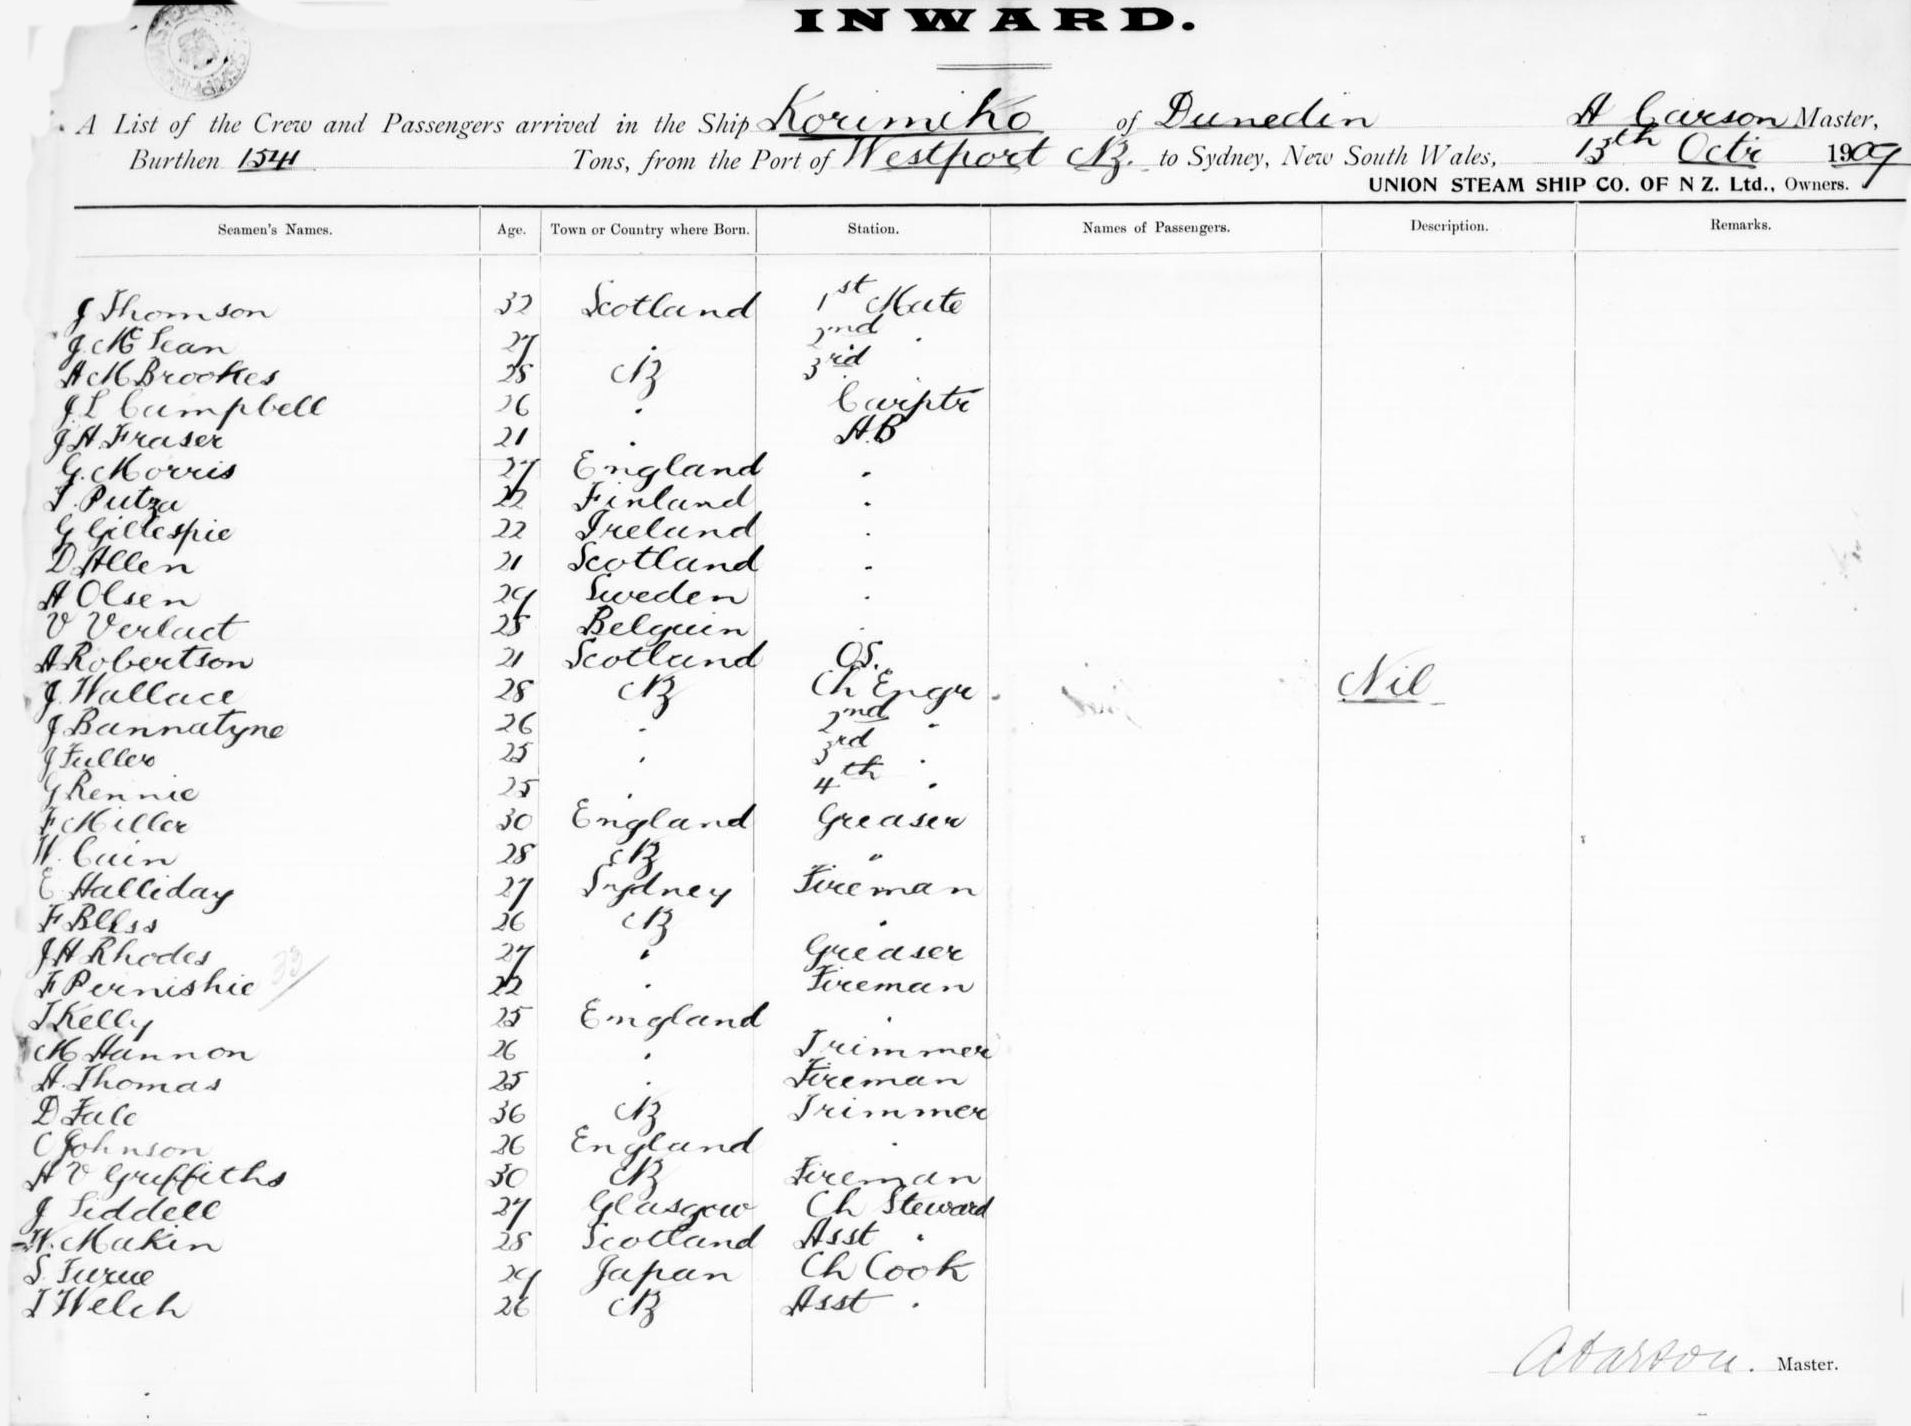 INWARD.
A List of the Crew and Passengers arrived in the Ship Korimiko of Dunedin A Carson Master,
Burthen 1541 Tons, from the Port of Westport NZ. to Sydney, New South Wales, 13th Octr 1909
UNION STEAM SHIP CO. OF N Z. Ltd., Owners.
Seamen's Names. Age. Town or Country where Born. Station. Names of Passengers. Description. Remarks.
J Thomson 32 Scotland 1st Mate
J. McLean 27 " 2nd "
A M Brookes 28 NZ 3rd "
J L Campbell 26 " Carptr
J A Fraser 21 " A.B
G. Morris 27 England "
T. Putza 22 Finland "
G Gillespie 22 Ireland "
D Allen 21 Scotland "
A Olsen 29 Sweden "
V Verlact 25 Belguin "
A Robertson 21 Scotland O.S.
J. Wallace 28 NZ Ch Engr Nil
J Bannatyne 26 " 2nd "
J Fuller 25 " 3rd "
G Rennie 25 " 4th "
F Miller 30 England Greaser
W. Cain 28 NZ "
E Halliday 27 Sydney Fireman
F Bliss 26 NZ "
J H Rhodes 27 " Greaser
F Pernishie 22 " Fireman
T Kelly 25 England "
M Hannon 26 " Trimmer
A. Thomas 25 " Fireman
D Fale 36 NZ Trimmer
C Johnson 26 England "
A V Griffiths 30 NZ Fireman
J Liddell 27 Glasgow Ch Steward
W. Makin 28 Scotland Asst "
S. Furue 29 Japan Ch Cook
T Welch 26 NZ Asst "
A Carson. Master.